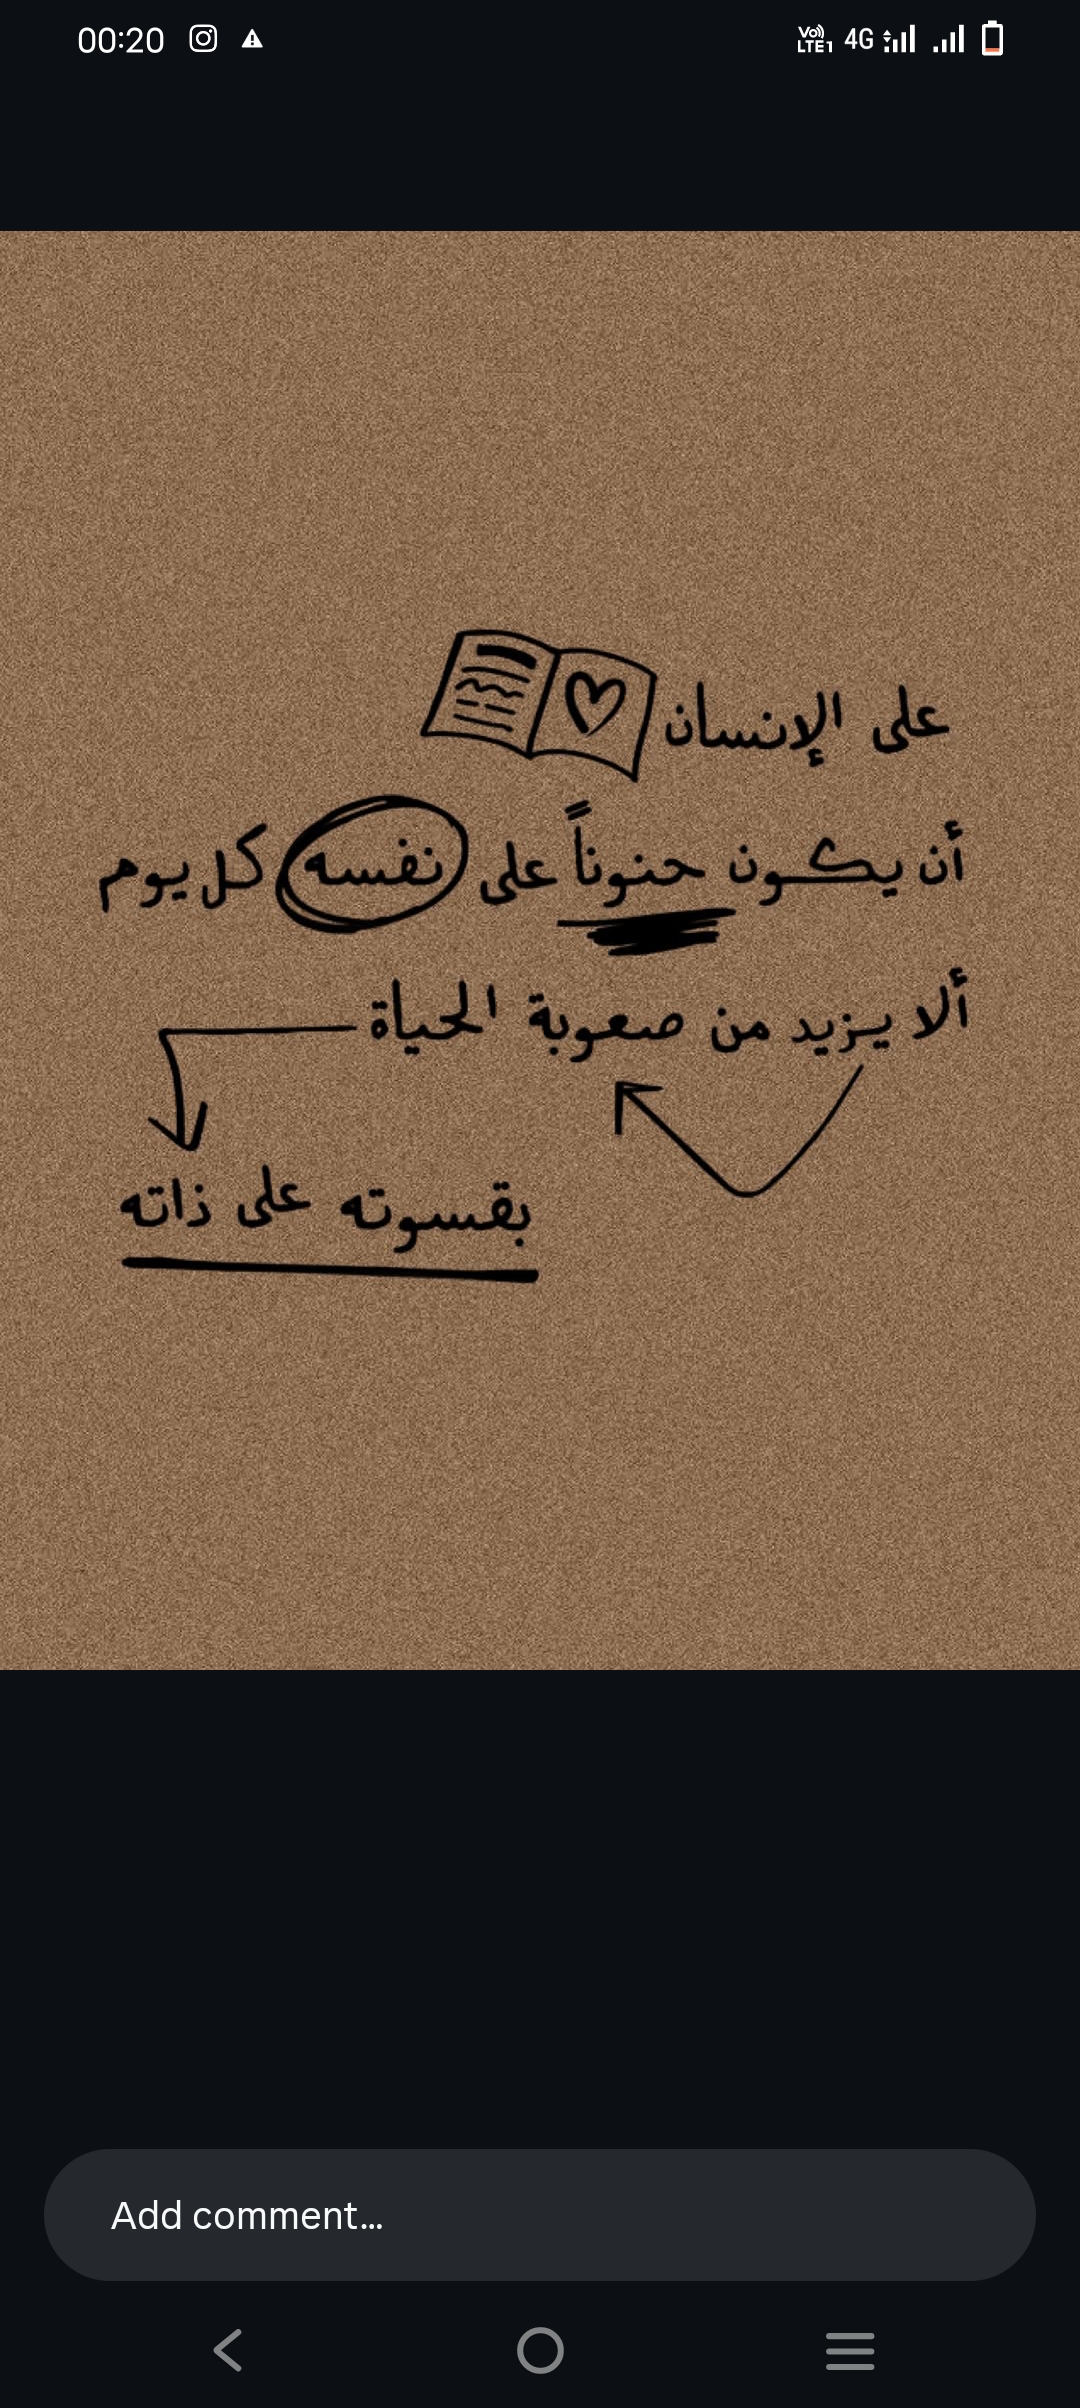 00:20 Vo) LTE1 4G
على الإنسان
أن يكون حنوناً على نفسه كل يوم
ألا يزيد من صعوبة الحياة
بقسوته على ذاته
Add comment...